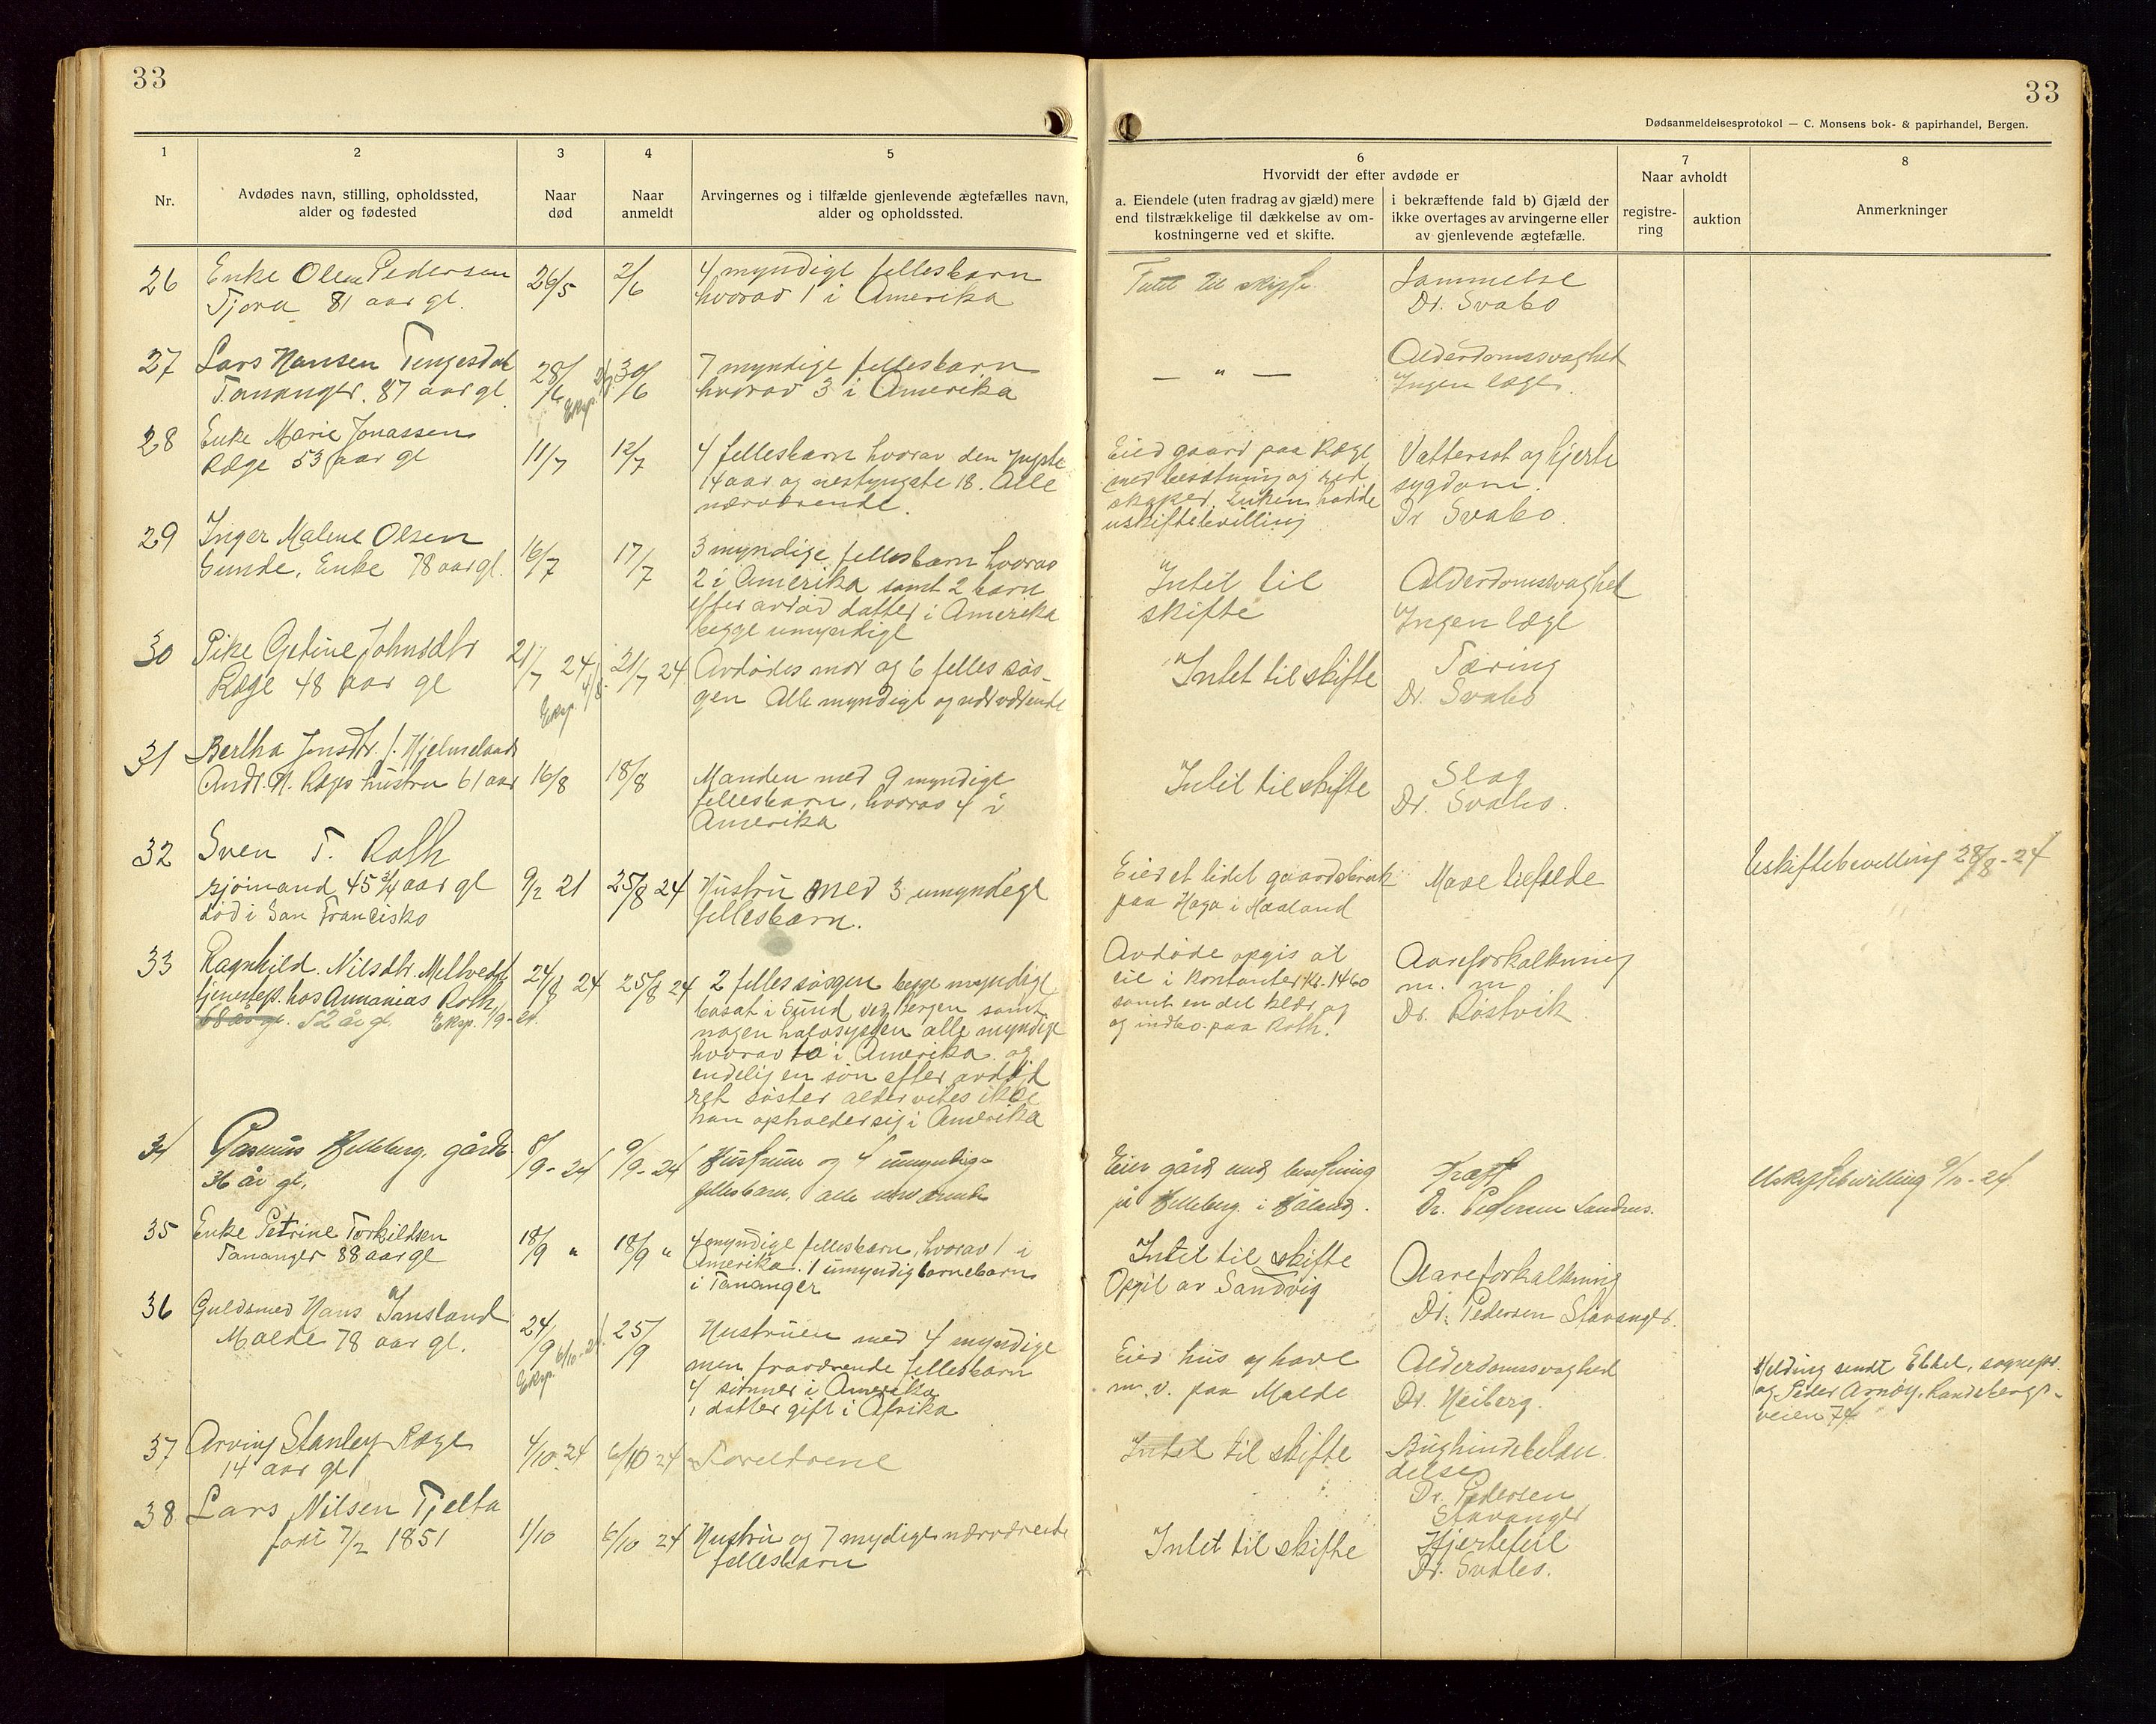 33
33
Dødsanmeldelsesprotokol — C. Monsens bok- & papirhandel, Bergen.
1
Nr.
2
Avdødes navn, stilling, opholdssted,
alder og fødested
3
Naar
død
4
Naar
anmeldt
5
Arvingernes og i tilfælde gjenlevende ægtefælles navn,
alder og opholdssted.
6
Hvorvidt der efter avdøde er
a. Eiendele (uten fradrag av gjæld) mere
end tilstrækkelige til dækkelse av om-
kostningerne ved et skifte.
i bekræftende fald b) Gjæld der
ikke overtages av arvingerne eller
av gjenlevende ægtefælle.
7
Naar avholdt
registre-
ring
auktion
8
Anmerkninger
26
Enke Olene Pedersen
Tjora 81 aar gl.
26/5
2/6
4 myndige fellesbarn
hvorav 1 i Amerika
Intet til skifte
Dr. Svabo
27
Lars Hansen Tengesdal
Tananger. 87 aar gl
28/6
30/6
7 myndige fellesbarn
hvorav 3 i Amerika
— " —
Alderdomssvaghet
Ingen læge.
28
Enke Marie Jonassen
Ræge 53 aar gl
11/7
12/7
4 fellesbarn hvorav den yngste
14 aar og nestyngste 18. Alle
nærværende.
Eied gaard paa Ræge
med besætning og red
skaper. Enken hadde
uskiftebevilling
Vattersot og hjerte
sygdom.
Dr Svabo
29
Inger Malene Olsen
Sunde, Enke 78 aar gl.
16/7
17/7
3 myndige fellesbarn hvorav
2 i Amerika samt 2 barn
efter avdød datter i Amerika
begge umyndige
Intet til
skifte
Alderdomssvaghet
Ingen læge
30
Pike Gjetine Johnsdtr
Ræge 48 aar gl
21/7 24
Eksp. 4/8
21/7 24
Avdødes mor og 6 felles søs-
gen Alle myndige og nærværende
Intet til skifte
Tæring
Dr. Svabo
31
Bertha Jensdtr. f. Hjelmeland
Andr. N. Ræges hustru 61 aar
16/8
18/8
Manden med 9 myndige
fellesbarn, hvorav 4 i
Amerika
Intet til skifte
Slag
Dr. Svabo.
32
Sven T. Roth
sjømand, 45 3/4 aar gl
død i San Francisko
9/2 21
25/8 24
Hustru med 3 umyndige
fellesbarn.
Eied et lidet gaardsbruk
paa Haga i Haaland
Mave
Uskiftebevilling 28/8-24
33
Ragnhild Nilsdtr.
tjenestep. hos Annanias Roth
68 aar gl. 52 år gl. Eksp. 1/9-24.
24/8 24
25/8 24
2 felles søsgen begge myndige
bosat i Sund ved Bergen samt
nogen halvsysgen alle myndige
hvorav to i Amerika og
endelig en søn efter avdød
ret søster alder vites ikke
han opholder sig i Amerika
Avdøde opgis at
eie i kontanter kr. 1460
samt en del klær og
og indbo paa Roth.
Aareforkalkning
m. m
Dr. Røstvik
34
Rasmus Helleberg. gårdb.
36 år gl.
8/9-24
9/9-24
Hustruen og 4 umyndige
fellesbarn, alle nærværende
Eier gård med besetning
på Helleberg i Håland.
Kræft
Dr. Pedersen Sandnes.
Uskiftebevilling 9/10-24
35
Enke Petrine Torkildsen
Tananger 88 aar gl
18/9 "
18/9 "
4 myndige fellesbarn, hvorav 1 i
Amerika. 1 umyndig barnebarn
i Tananger
Intet til skifte
Opgit av Sandvig
Aareforkalkning
Dr. Pedersen Stavanger.
36
Guldsmed Hans Insland
Malde 78 aar gl.
24/9
Eksp. 6/10-24.
25/9
Hustruen med 4 myndige
men fraværende fellesbarn
4 sønner i Amerika
1 datter gift i Afrika
Eied hus og have
m. v. paa Malde
Alderdomssvaghed
Dr. Heiberg.
Melding sendt Ebbel, sognepr.
og Peder Arnøy, Randabergs-
veien 74
37
Arving Stanley Ræge
14 aar gl
4/10 24
6/10 24
Foreldrene
Intet til skifte
Bughindebeten
delse
Dr. Pedersen
Stavanger
38
Lars Nilsen Tjelta
født 7/2 1851
1/10
6/10 24
Hustru og 7 mydige nærværende
fellesbarn
Intet til skifte
Hjertefeil
Dr. Svabo.